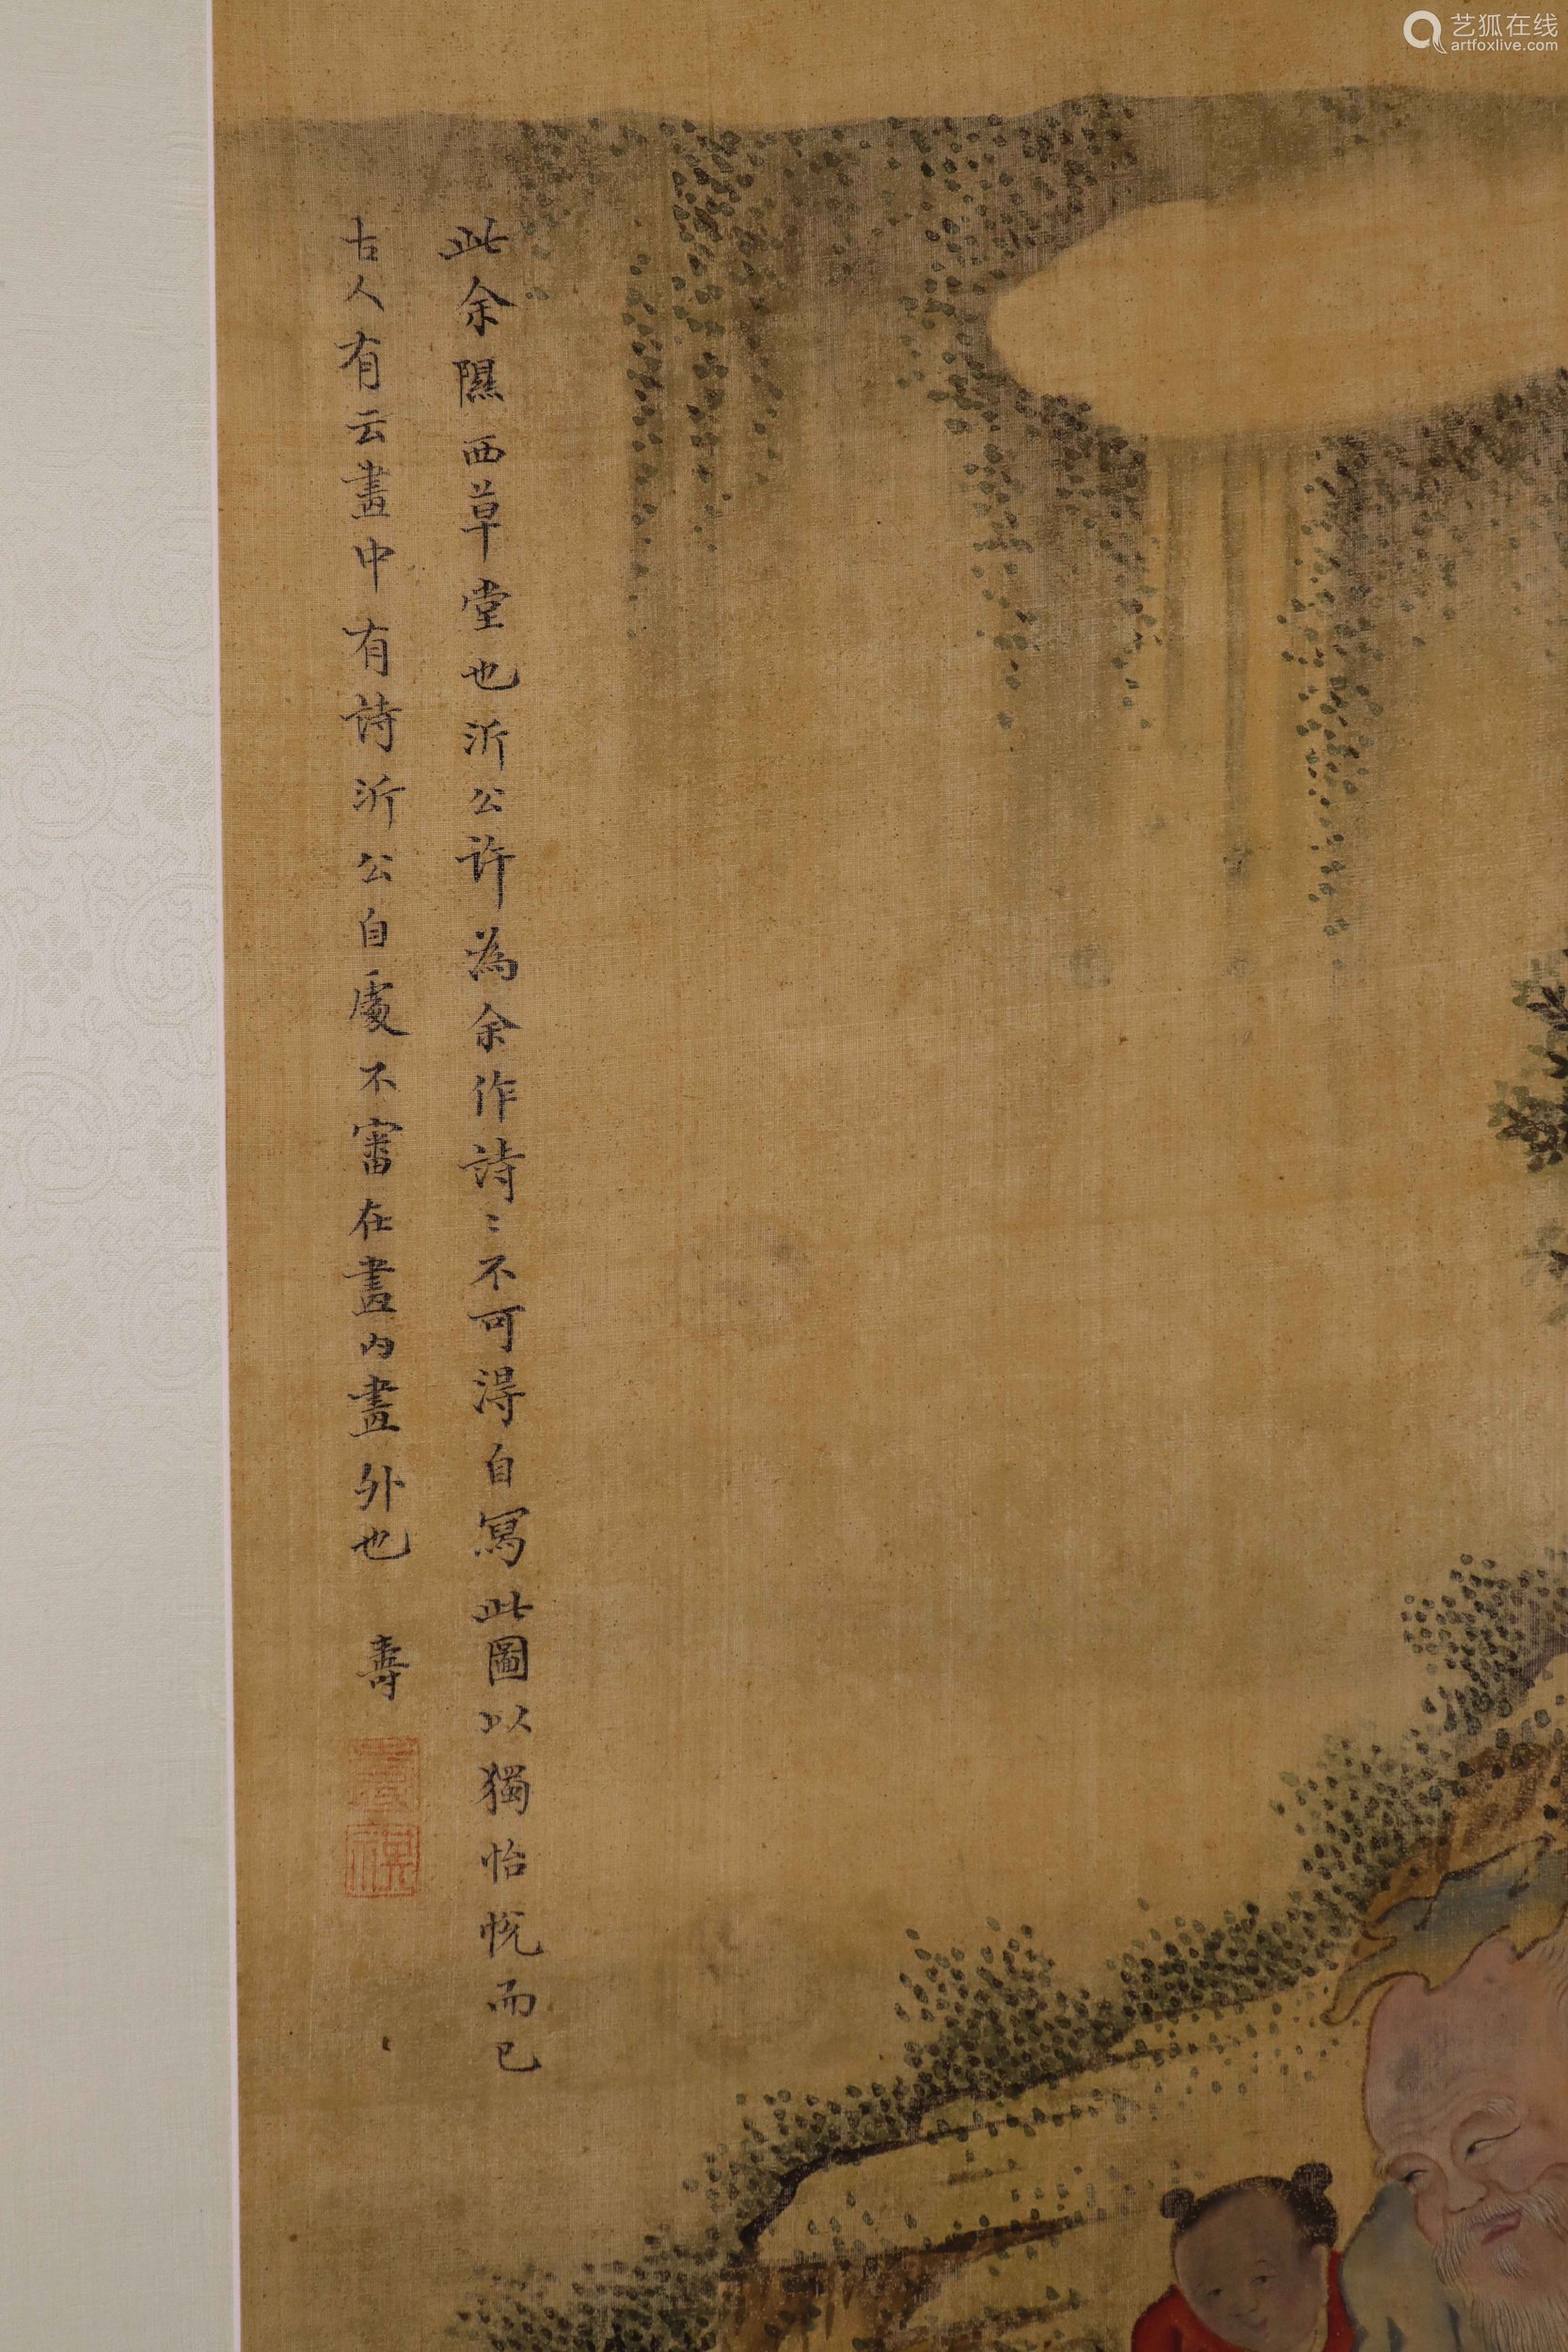 艺狐在线
artfoxlive.com
此余隰西草堂也沂公許為余作詩〻不可得自寫此圖以獨怡悦而已
古人有云畫中有詩沂公自處不審在畫内畫外也
壽